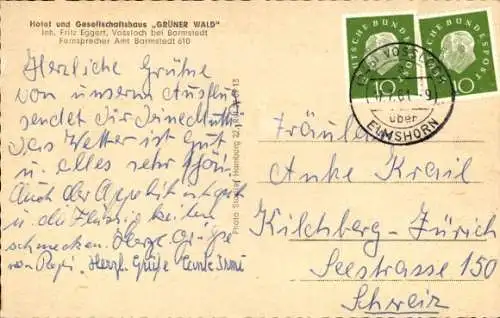 Hotel und Gesellschaftshaus „GRÜNER WALD"
Inh. Fritz Eggert, Vossloch bei Barmstedt
Fernsprecher Amt Barmstedt 610
Herzliche Grüße
von unserm Ausflug
sendet dir deine Mutti
das Wetter ist gut
u. alles sehr schön
Auch der Appetit ist gut
u. die Flüssigkeiten
schmecken. Herzl. Grüße
von Papi. Herzl. Grüße Tante Irmi
Photo Hamburg 22
DEUTSCHE BUNDESPOST
10
DEUTSCHE BUNDESPOST
10
Vossloch
61-9
über
ELMSHORN
Fräulein
Anke Krail
Kilchberg-Zürich
Seestrasse 150
Schweiz